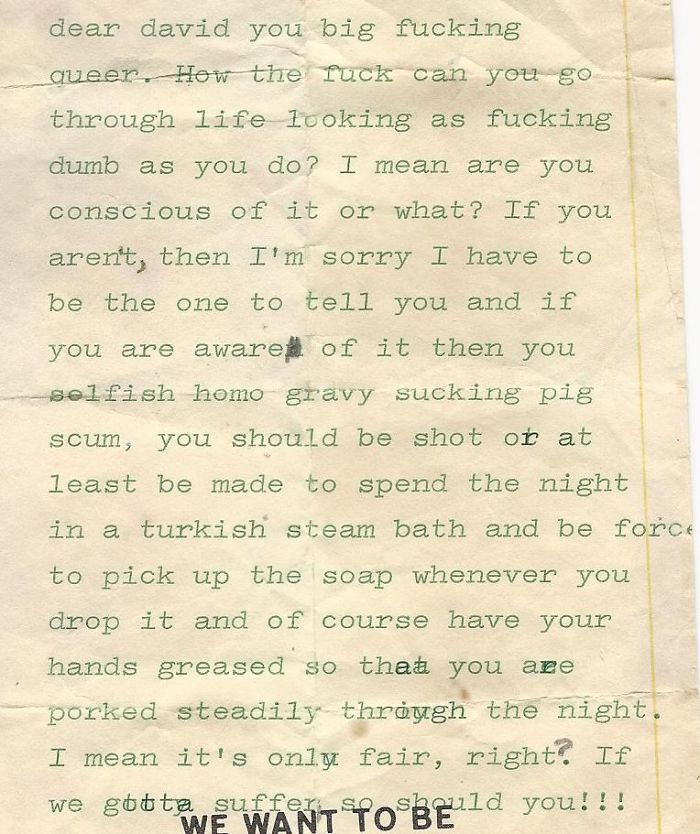 dear david you big fucking
queer. How the fuck can you go
through life looking as fucking
dumb as you do? I mean are you
conscious of it or what? If you
aren't, then I'm sorry I have to
be the one to tell you and if
you are aware of it then you
selfish homo gravy sucking pig
scum, you should be shot or at
least be made to spend the night
in a turkish steam bath and be force
to pick up the soap whenever you
drop it and of course have your
hands greased so that you are
porked steadily through the night.
I mean it's only fair, right? If
we gotta suffer so should you!!!
WE WANT TO BE